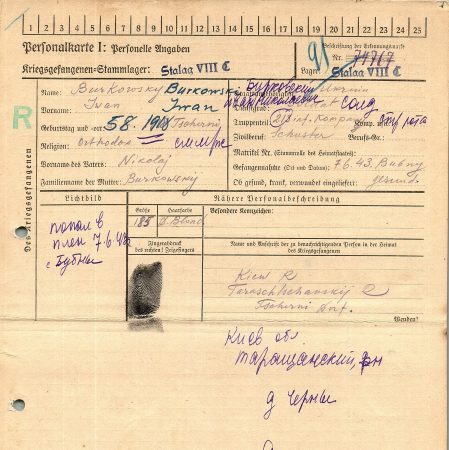 1 2 3 4 5 6 7 8 9 10 11 12 13 14 15 16 17 18 19 20 21 22 23 24 25
Personalkarte I: Personelle Angaben
Kriegsgefangenen-Stammlager: Stalag VIII C
Beschriftung der Erkennungsmarke
Nr. 74767
Lager: Stalag VIII C
Des Kriegsgefangenen
R
Name: Burkowsky Burkowski
Бурковский
Vorname: Iwan Iwan
Иван Николаевич
солд
Geburtstag und -ort: 5.8.1918 Tscherni
Religion: Orthodox
Vorname des Vaters: Nikolaj
Familienname der Mutter: Burkowskij
Truppenteil: Inf. Komp.
стр рота
Zivilberuf: Schuster Berufs-Gr.:
Matrikel Nr. (Stammrolle des Heimatstaates):
Gefangennahme (Ort und Datum): 7.6.43 Bubny
Ob gesund, krank, verwundet eingeliefert: gesund
Lichtbild
Nähere Personalbeschreibung
Größe
Haarfarbe
Besondere Kennzeichen:
185
Blond
попал в
плен 7.6.43
с Бубны
Fingerabdruck
des rechten! Zeigefingers
Name und Anschrift der zu benachrichtigenden Person in der Heimat
des Kriegsgefangenen
Kiew R
Taraschtschanskij R
Tscherni
Wenden!
Киев обл
Таращанский рн
д Черны